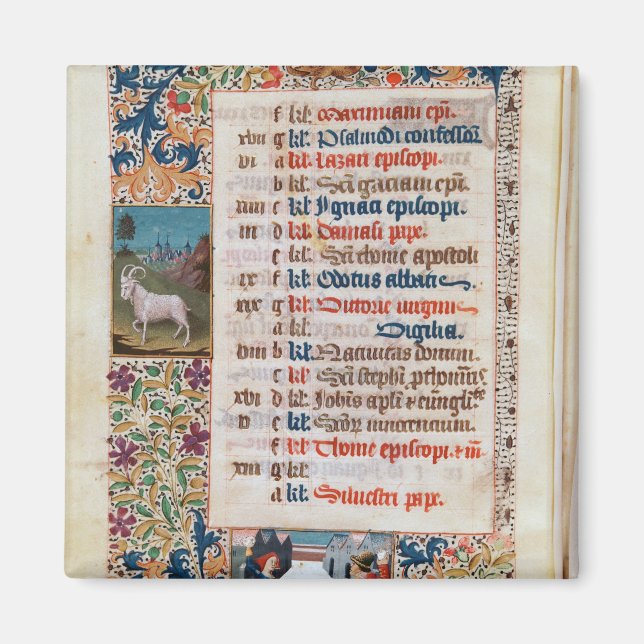 f kl: Maximiani epi.
xviii g kl: Psalmodi confessor
vi a kl: Lazari episcopi.
b kl: Sci graciani epi.
xiiii c kl: Ignaci episcopi.
iii d kl: Damasi pape.
e kl: Sci thome apostoli
xi f kl: Odotus abbatis
xix g kl: Victorie virginis
a kl: Vigilia.
viii b kl: Nativitas domini.
c kl: Sci stephani
xvi d kl: Johis apli & eungliste
v e kl: Scor innocencium.
f kl: Thome episcopi. & m̄.
xiii g kl:
a kl: Silvestri pape.